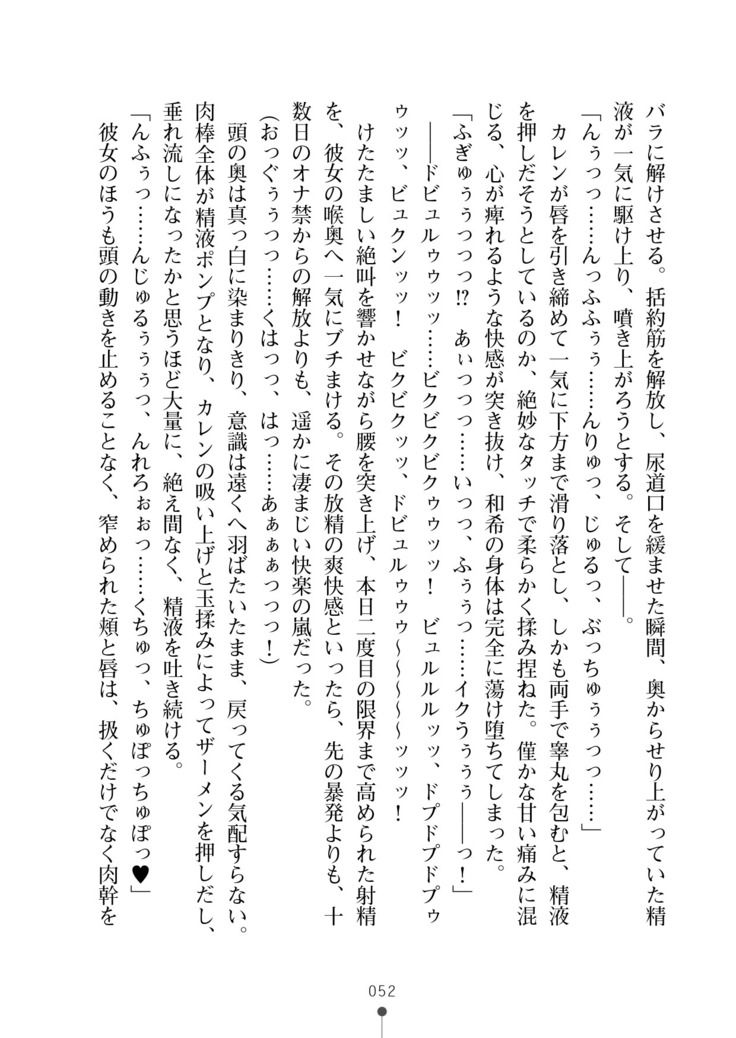 バラに解けさせる。括約筋を解放し、尿道口を緩ませた瞬間、奥からせり上がっていた精
液が一気に駆け上り、噴き上がろうとする。そして――。
「んぅっっ……んっふふぅぅ……んりゅっ、じゅるっ、ぶっちゅぅぅっっ……」
カレンが唇を引き締めて一気に下方まで滑り落とし、しかも両手で睾丸を包むと、精液
を押しだそうとしているのか、絶妙なタッチで柔らかく揉み捏ねた。僅かな甘い痛みに混
じる、心が痺れるような快感が突き抜け、和希の身体は完全に蕩け堕ちてしまった。
「ふぎゅぅぅっっっ⁉　あぃっっっ……いっっ、ふぅぅっ……イクうぅぅぅ――っ！」
――ドビュルゥゥッッ……ビクビクビクゥゥッッ！　ビュルルルッッ、ドプドプドプゥ
ゥッッ、ビュクンッッ！　ビクビクッッ、ドビュルゥゥゥ～～～～～ッッッ！
けたたましい絶叫を響かせながら腰を突き上げ、本日二度目の限界まで高められた射精
を、彼女の喉奥へ一気にブチまける。その放精の爽快感といったら、先の暴発よりも、十
数日のオナ禁からの解放よりも、遥かに凄まじい快楽の嵐だった。
（おっぐぅぅっっ……くはっっ、はっ……あぁぁぁっっっ！）
頭の奥は真っ白に染まりきり、意識は遠くへ羽ばたいたまま、戻ってくる気配すらない。
肉棒全体が精液ポンプとなり、カレンの吸い上げと玉揉みによってザーメンを押しだし、
垂れ流しになったかと思うほど大量に、絶え間なく、精液を吐き続ける。
「んふぅっ……んじゅるぅぅぅっ、んれろぉぉっ……くちゅっ、ちゅぽっちゅぽっ♥」
彼女のほうも頭の動きを止めることなく、窄められた頬と唇は、扱くだけでなく肉幹を
052